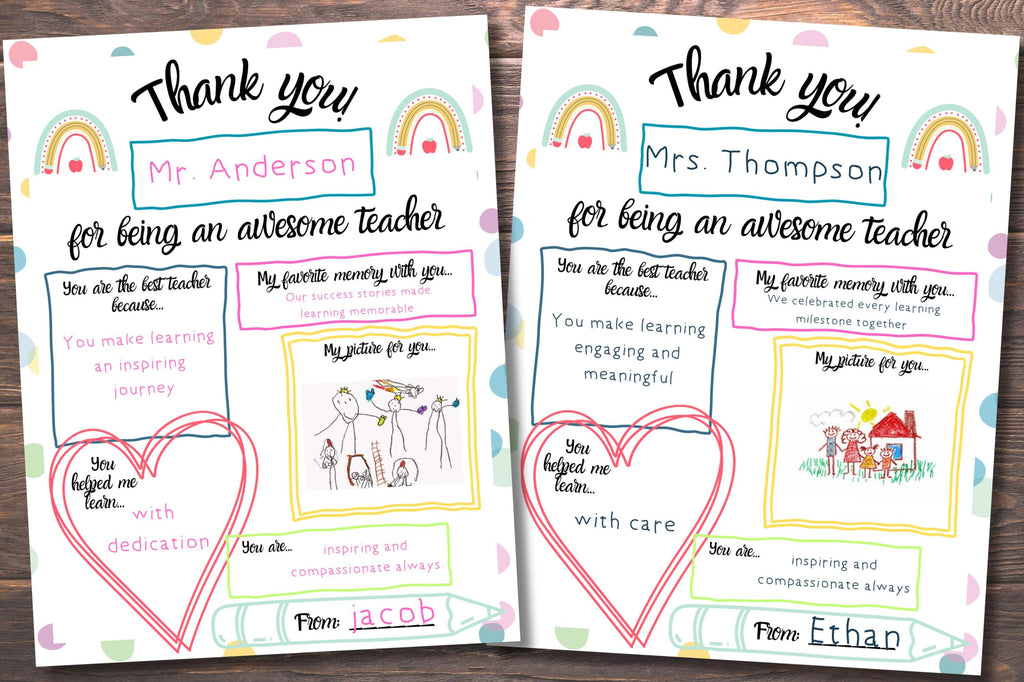 Thank you!
Mr. Anderson
for being an awesome teacher
You are the best teacher
because...
You make learning
an inspiring
journey
My favorite memory with you...
Our success stories made
learning memorable
My picture for you...
You
helped me
learn...
with
dedication
You are...
inspiring and
compassionate always.
From: jacob
Thank you!
Mrs. Thompson
for being an awesome teacher
You are the best teacher
because...
You make learning
engaging and
meaningful
My favorite memory with you...
We celebrated every learning
milestone together.
My picture for you...
You
helped me
learn...
with care
You are...
inspiring and
compassionate always
From: Ethan